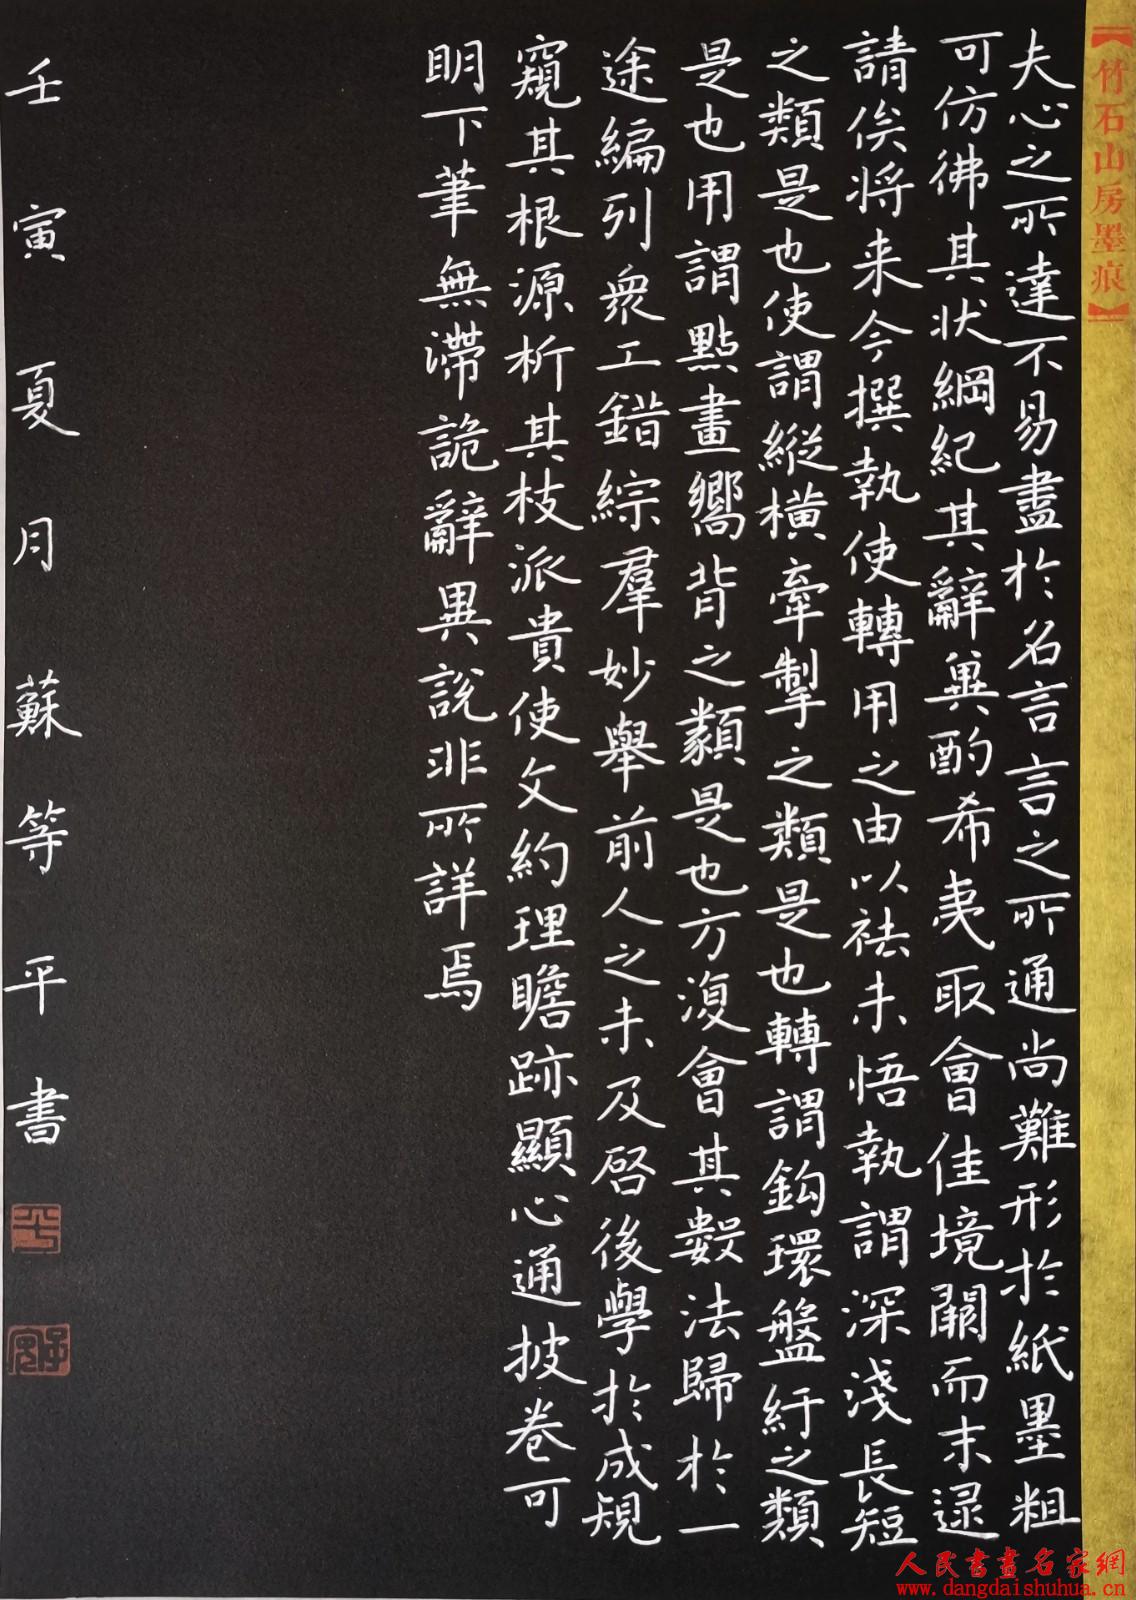 【竹石山房墨痕】
夫心之所達不易盡於名言言之所通尚難形於紙墨粗
可仿彿其狀綱紀其辭兾酌希夷取會佳境闕而末逯
請俟将来今撰執使轉用之由以祛未悟執謂深淺長短
之類是也使謂縱橫牽掣之類是也轉謂鈎環盤紆之類
是也用謂點畫嚮背之類是也方復會其數法歸於一
途編列衆工錯綜羣妙舉前人之未及啓後學於成規
窺其根源析其枝派貴使文約理贍跡顯心通披卷可
明下筆無滯詭辭異說非所詳焉
壬寅夏月蘇等平書
人民書畫名家網
www.dangdaishuhua.cn